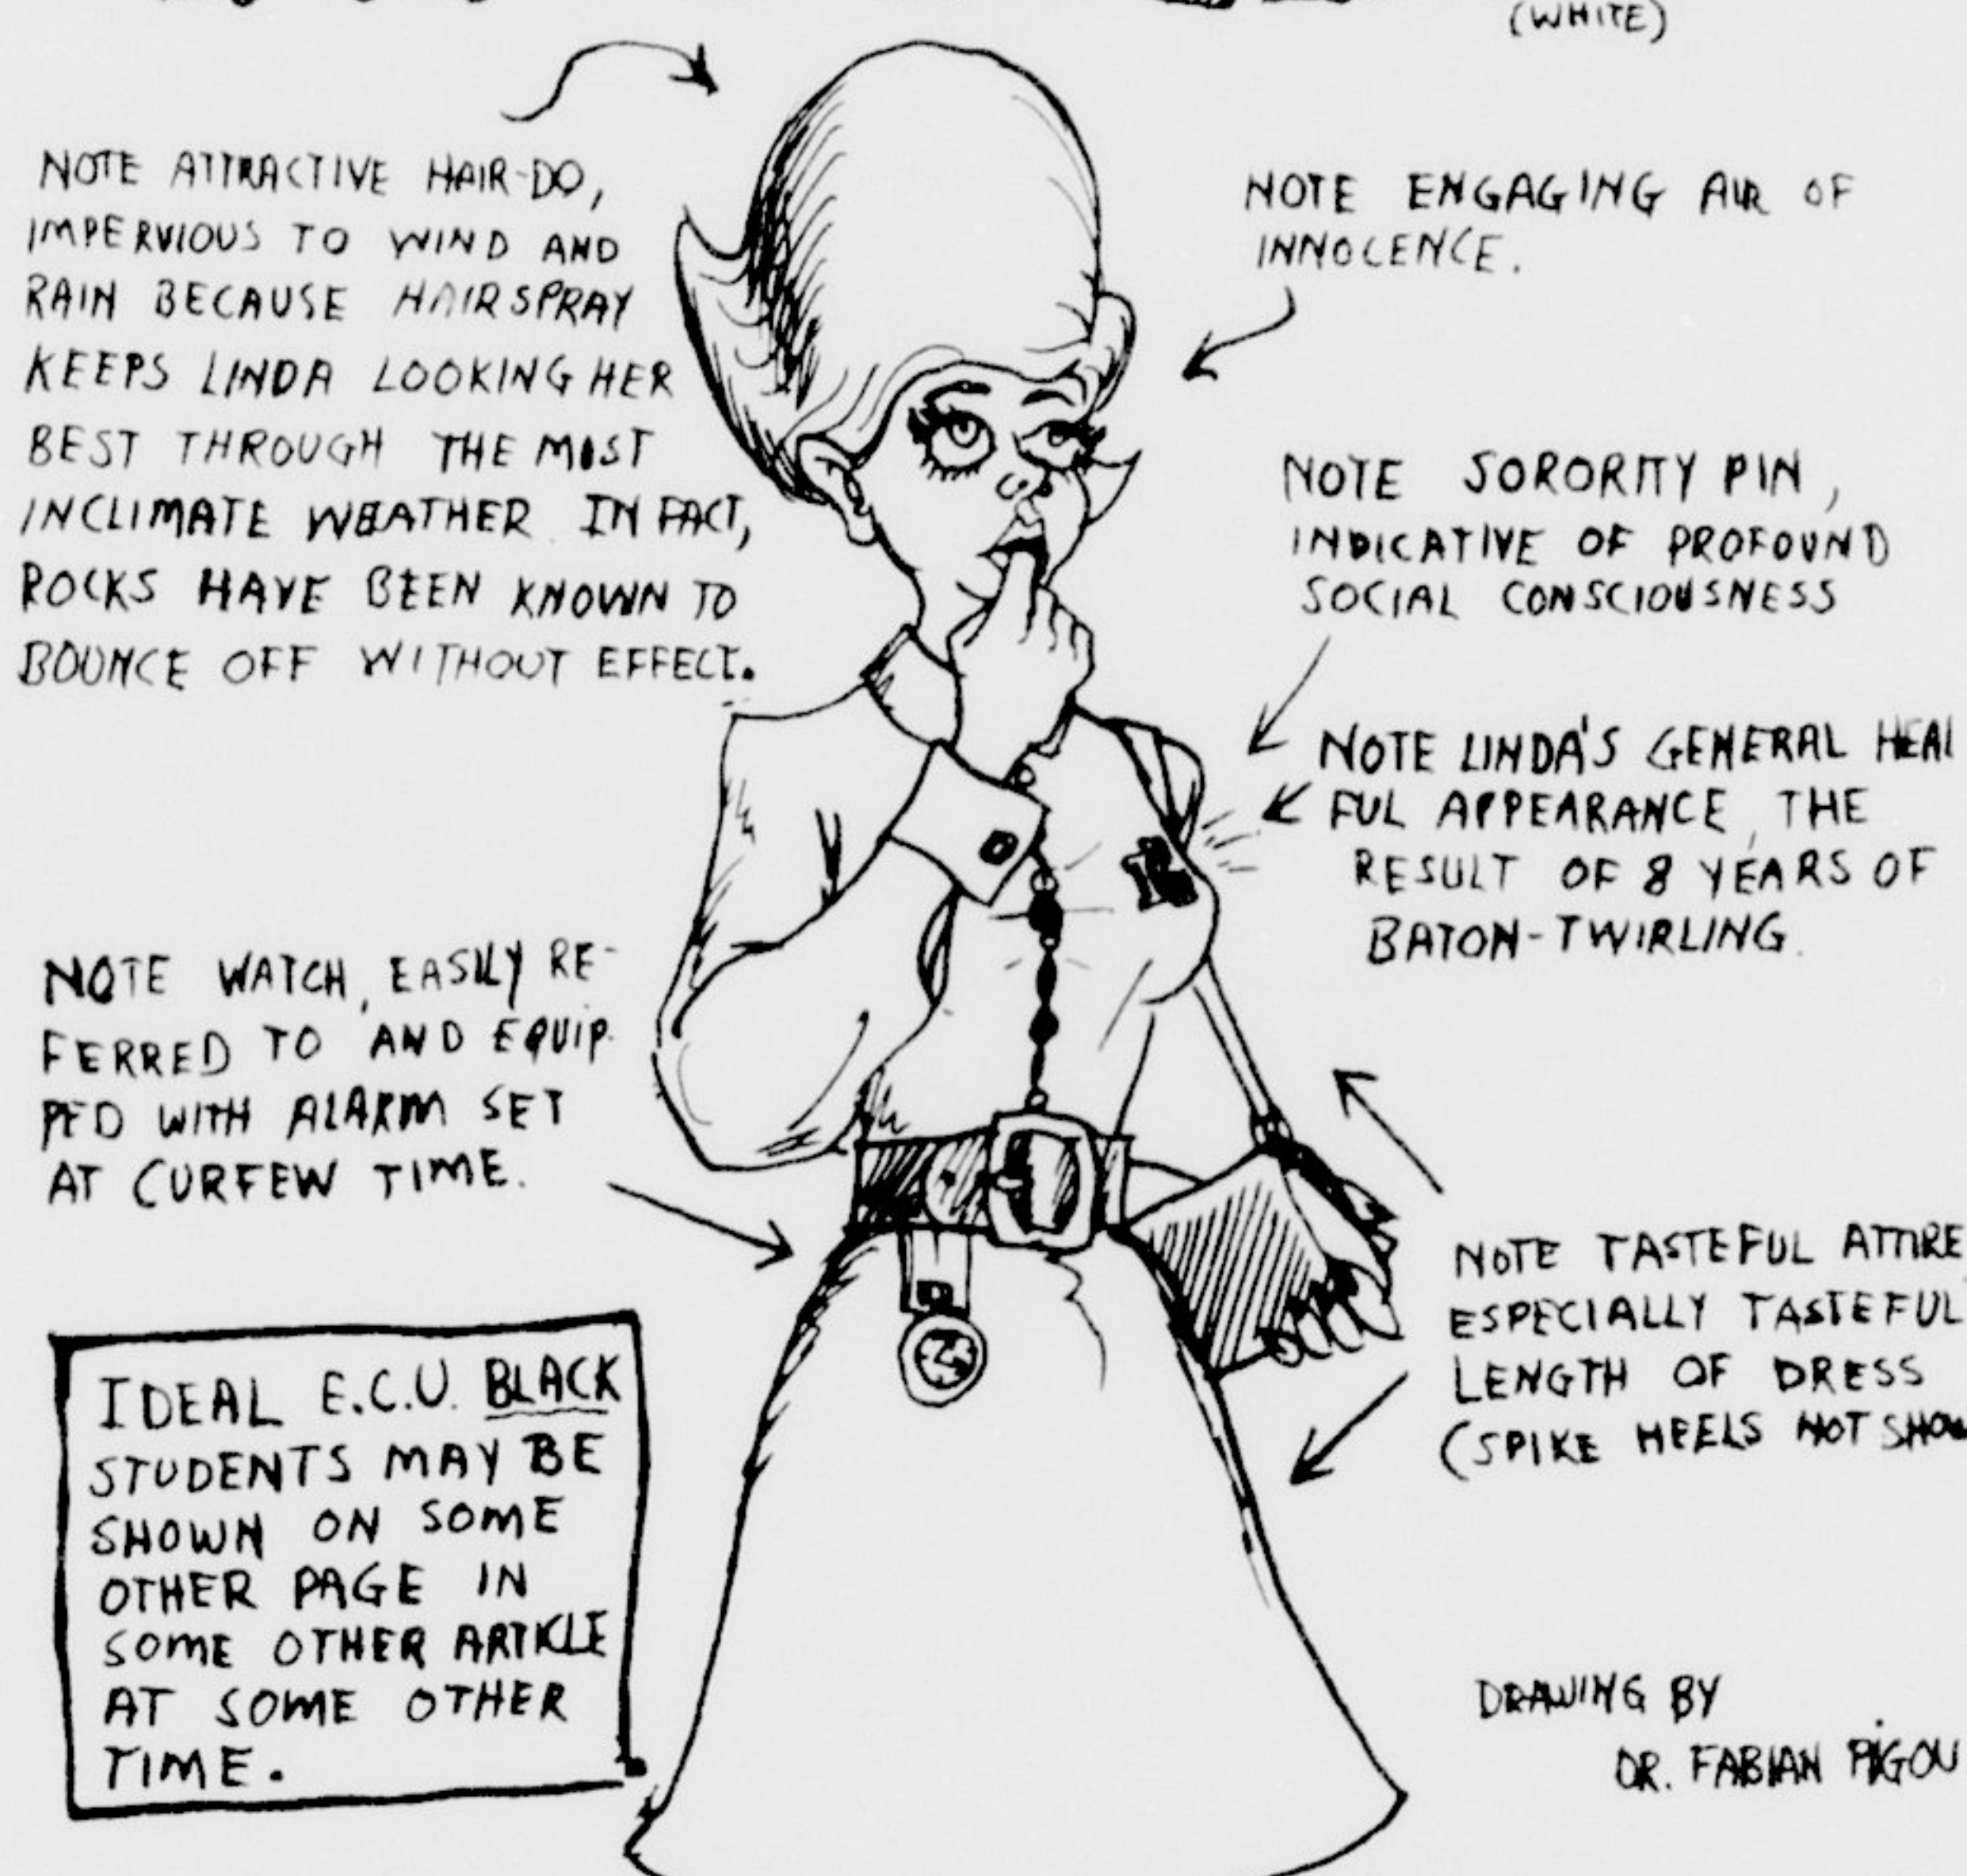 (WHITE)
NOTE ATTRACTIVE HAIR-DO,
IMPERVIOUS TO WIND AND
RAIN BECAUSE HAIRSPRAY
KEEPS LINDA LOOKING HER
BEST THROUGH THE MOST
INCLIMATE WEATHER. IN FACT,
ROCKS HAVE BEEN KNOWN TO
BOUNCE OFF WITHOUT EFFECT.
NOTE ENGAGING AIR OF
INNOCENCE.
NOTE SORORITY PIN,
INDICATIVE OF PROFOUND
SOCIAL CONSCIOUSNESS
NOTE LINDA'S GENERAL HEAL
FUL APPEARANCE, THE
RESULT OF 8 YEARS OF
BATON-TWIRLING.
NOTE WATCH, EASILY RE-
FERRED TO AND EQUIP-
PED WITH ALARM SET
AT CURFEW TIME.
NOTE TASTEFUL ATTIRE
ESPECIALLY TASTEFUL
LENGTH OF DRESS
(SPIKE HEELS NOT SHOW
IDEAL E.C.U. BLACK
STUDENTS MAY BE
SHOWN ON SOME
OTHER PAGE IN
SOME OTHER ARTICLE
AT SOME OTHER
TIME.
DRAWING BY
DR. FABIAN PIGOU